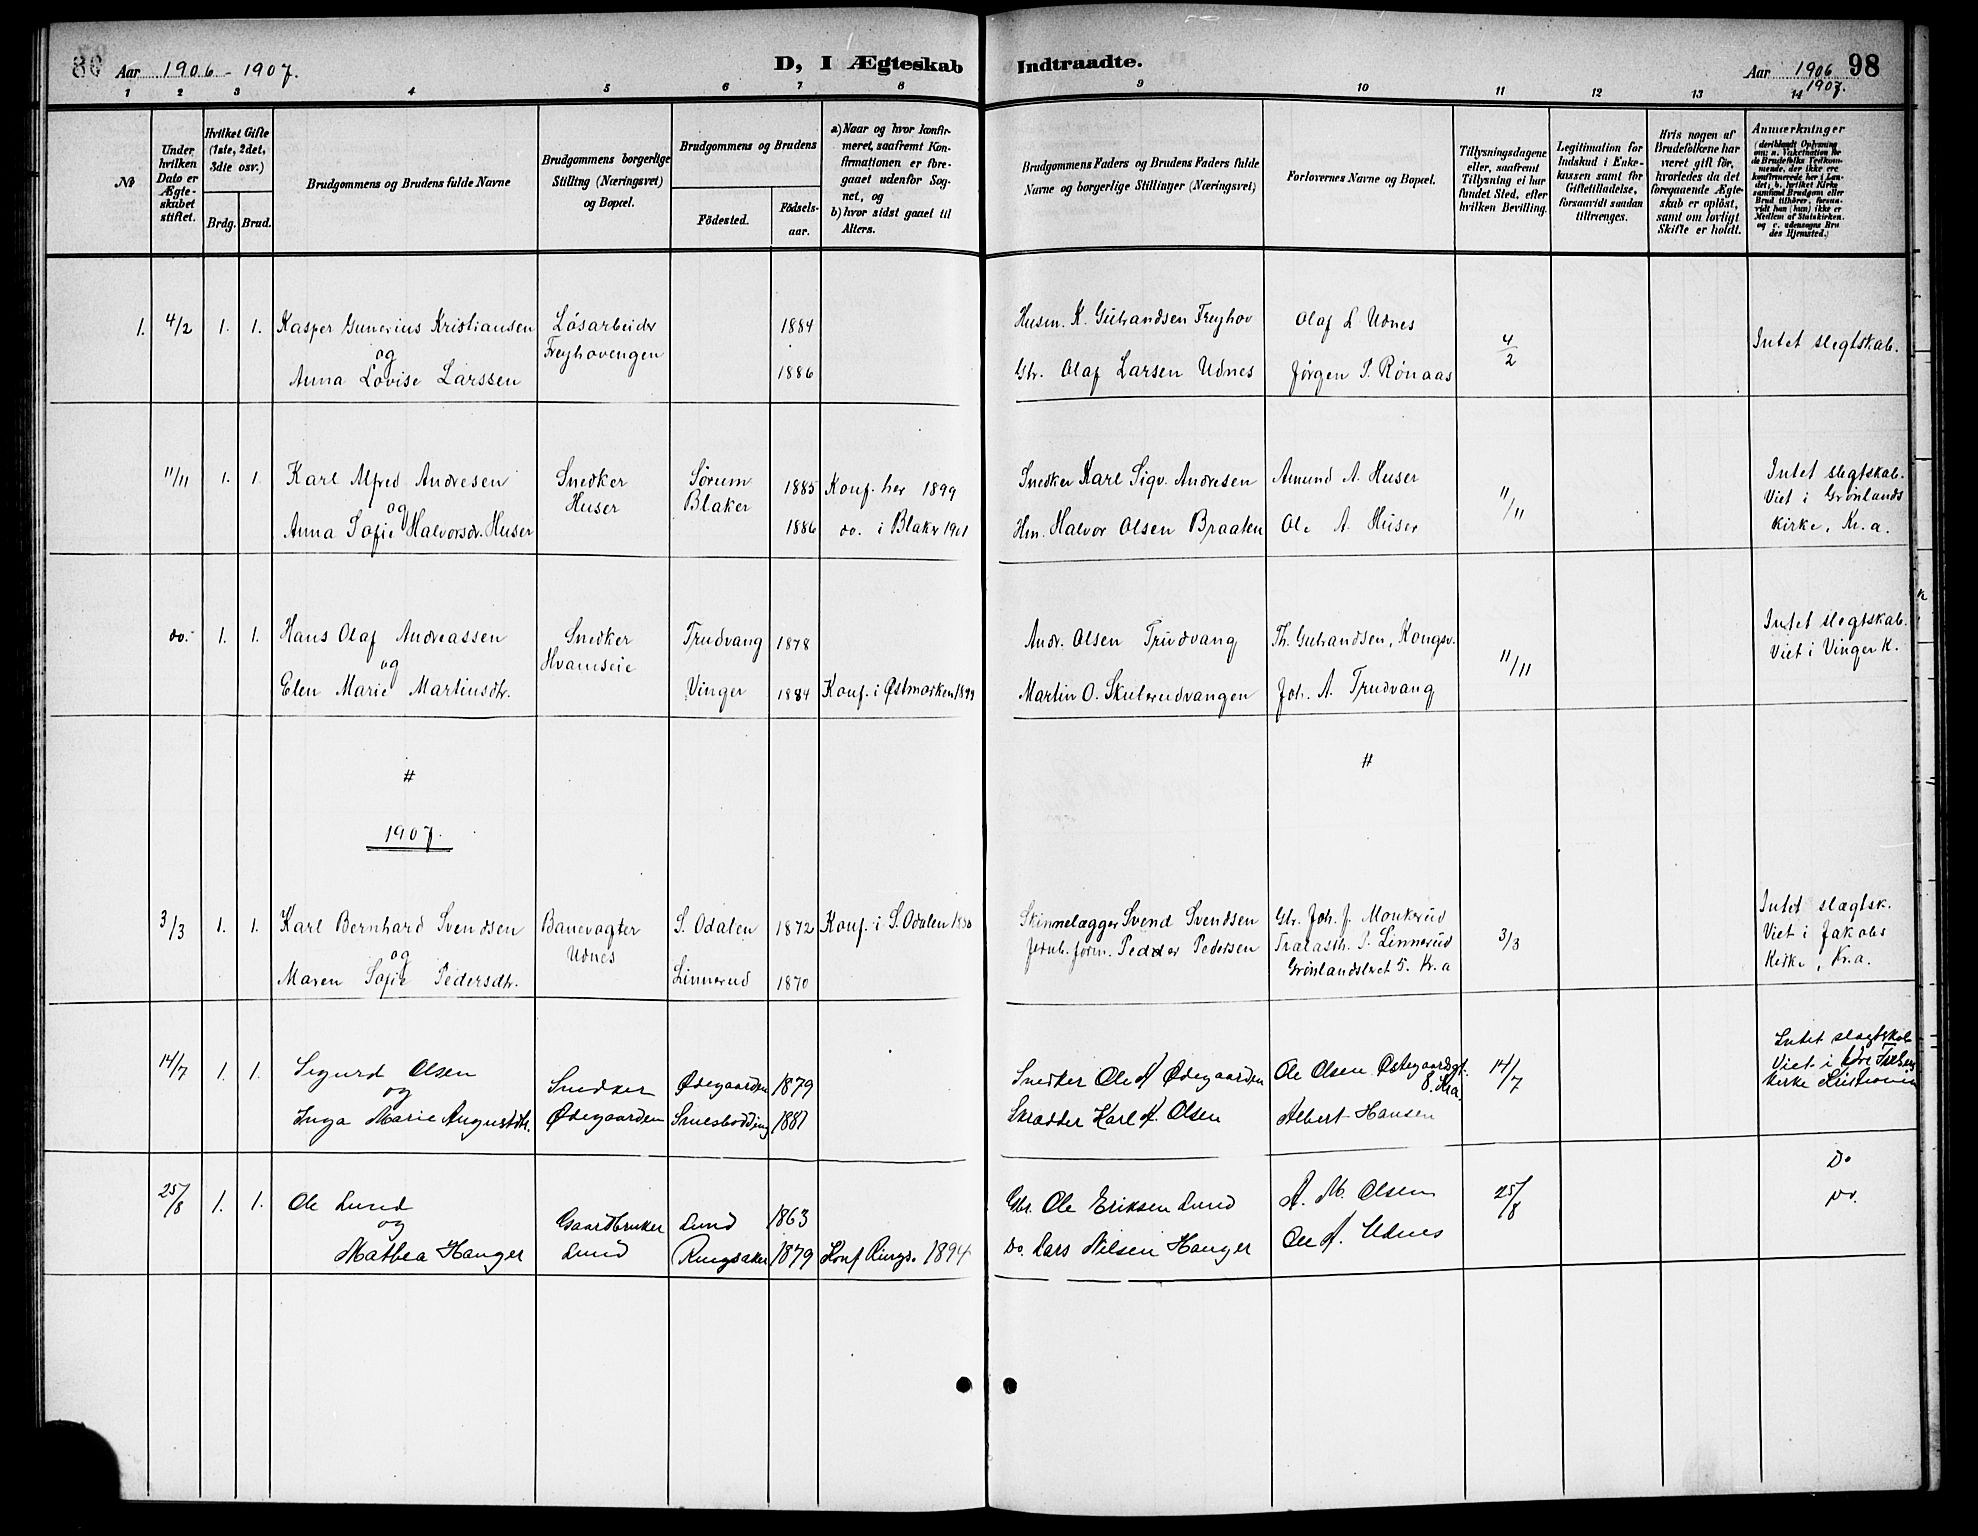 Aar 1906-1907. D, I Ægteskab Indtraadte. Aar 1906 1907. 98
1 2 3 4 5 6 7 8 9 10 11 12 13 14
№
Under hvilken Dato er Ægteskabet stiftet.
Hvilket Gifte (1ste, 2det, 3dte osv.)
Brdg. Brud.
Brudgommens og Brudens fulde Navne
Brudgommens borgerlige Stilling (Næringsvei) og Bopæl.
Brudgommens og Brudens
Födested. Födsels-aar.
a) Naar og hvor konfirmeret, saafremt Konfirmationen er foregaaet udenfor Sognet, og
b) hvor sidst gaaet til Alters.
Brudgommens Faders og Brudens Faders fulde Navne og borgerlige Stillinger (Næringsvei)
Forlovernes Navne og Bopæl.
Tillysningsdagene eller, saafremt Tillysning ei har fundet Sted, efter hvilken Bevilling.
Legitimation for Indskud i Enkekassen samt for Giftetilladelse, forsaavidt saadan tiltrænges.
Hvis nogen af Brudefolkene har været gift för, hvorledes da det foregaaende Ægteskab er oplöst, samt om lovligt Skifte er holdt.
Anmærkninger
(deriblandt Oplysning om: a. Vakcination for de Brudefolks Vedkommende, der ikke ere konfirmerede her i Landet, b. hvilket Kirkesamfund Brudgom eller Brud tilhörer, forsaavidt han (hun) ikke er Medlem af Statskirken. og c. udensogns Brudes Hjemsted.)
1. 4/2 1. 1. Kasper Gunerius Kristiansen Lösarbeider 1884 Husm. K. Gulrandsen Freyhov Olaf L Udnes 4/2 Intet slegtskab.
og Freyhovengen
Anna Lovise Larssen 1886 Gbr. Olaf Larsen Udnes Jørgen P. Rønaas
11/11 1. 1. Karl Alfred Andresen Snedker Sørum 1885 Konf. her 1899 Snedker Karl Sigv. Andresen Amund A. Huser 11/11 Intet slegtskab.
og Huser Blaker Viet i Grønlands
Anna Sofie Halvorsdr. Huser 1886 do. i Blaker 1901 Hm. Halvor Olsen Braaten Ole A. Huser Kirke, Kr.a.
do. 1. 1. Hans Olaf Andreassen Snedker Trudvang 1878 Andr. Olsen Trudvang Th. Gulrandsen, Kongsv. 11/11 Intet slegtskab.
og Hvamseie Viet i Vinger K.
Elen Marie Martinsdtr. Vinger 1884 Konf. i Østmarken 1899 Martin O. Skulerudvangen Joh. A. Trudvang
#  #
1907.
3/3 1. 1. Karl Bernhard Svendsen Banevogter S. Odalen 1872 Konf. i S. Odalen Skinnelægger Svend Svendsen Gbr. Joh. J. Monkerud 3/3 Intet slægtsk.
og Udnes Jernb. form. Pedder Pedersen P. Linnerud Viet i Jakobs
Maren Sofie Pedersdtr. Linnerud 1870 Grønlandsleret 5. Kr.a Kirke, Kr.a.
14/7 1. 1. Sigurd Olsen Snedker Ødegaarden 1879 Snedker Ole A Ødegaarden Ole Olsen Østegaardsgt. 8. Kra. 14/7 Intet slegtskab
og Viet i
Inga Marie Augustdtr. Ødegaarden 1881 Skrædder Karl A. Olsen Albert Hansen Kirke Kristiania
25/8 1. 1. Ole Lund Gaardbruker Lund 1863 Gbr. Ole Eriksen Lund A. M. Olsen 25/8 Do
og do.
Mathea Hanger Lund Ringsaker 1879 Konf Rings. 1894 Do. Lars Nilsen Hanger Ole A. Udnes